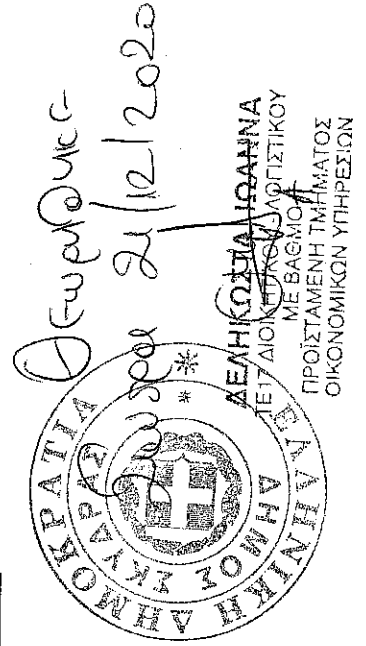 Θεωρήθηκε
Σκύδρα 21/12/2020
ΕΛΛΗΝΙΚΗ ΔΗΜΟΚΡΑΤΙΑ
ΔΗΜΟΣ ΣΚΥΔΡΑΣ
ΔΕΛΗΚΩΣΤΑ ΙΩΑΝΝΑ
ΤΕ17 ΔΙΟΙΚΗΤΙΚΟΥ-ΛΟΓΙΣΤΙΚΟΥ
ΜΕ ΒΑΘΜΟ Α
ΠΡΟΪΣΤΑΜΕΝΗ ΤΜΗΜΑΤΟΣ
ΟΙΚΟΝΟΜΙΚΩΝ ΥΠΗΡΕΣΙΩΝ